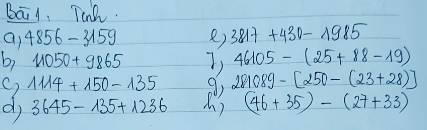 Bài 1. Tính.
a, 4856 - 3159
b, 11050 + 9865
c, 1114 + 150 - 135
d, 3645 - 135 + 1236
e, 3817 + 430 - 1985
f, 46105 - (25 + 88 - 19)
g, 281089 - [250 - (23 + 28)]
h, (46 + 35) - (27 + 33)